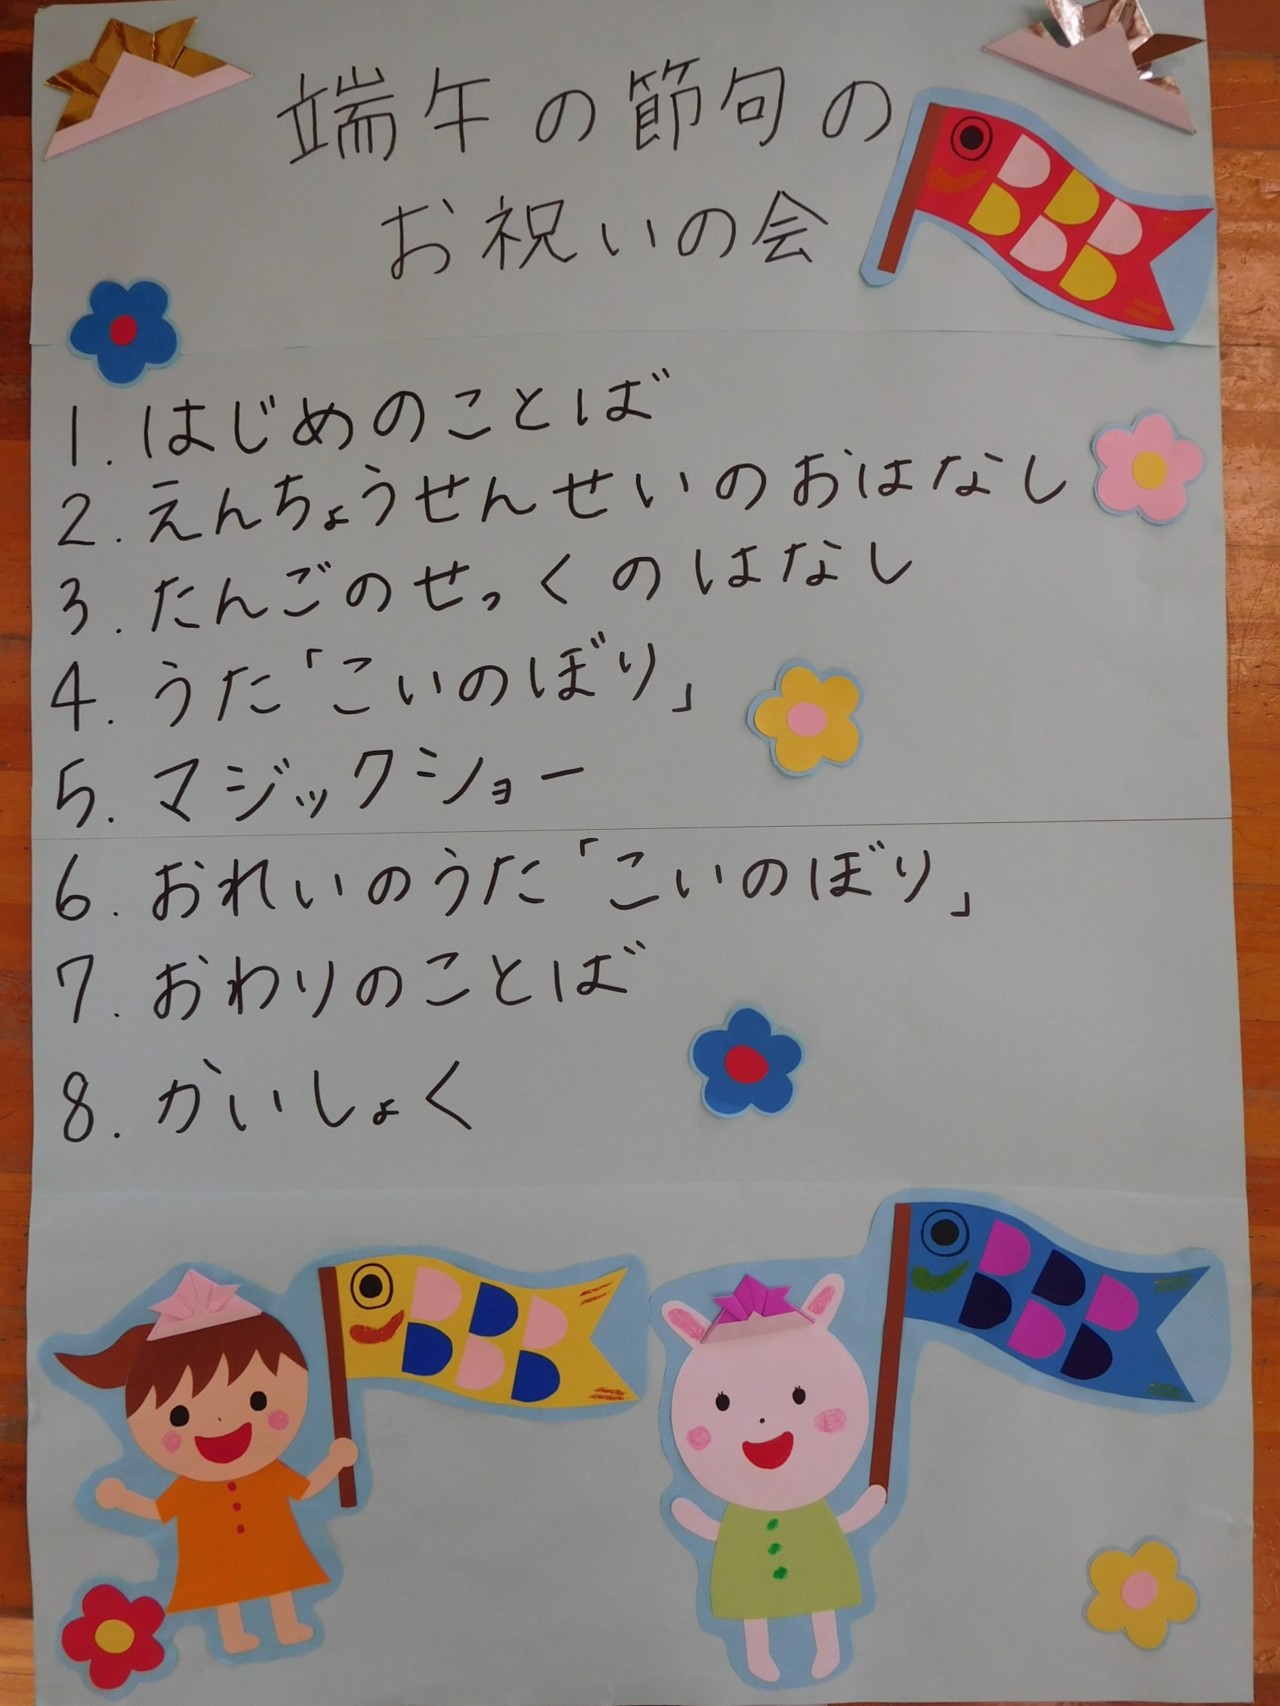 端午の節句の
お祝いの会
1. はじめのことば
2. えんちょうせんせいのおはなし
3. たんごのせっくのはなし
4. うた「こいのぼり」
5. マジックショー
6. おれいのうた「こいのぼり」
7. おわりのことば
8. かいしょく